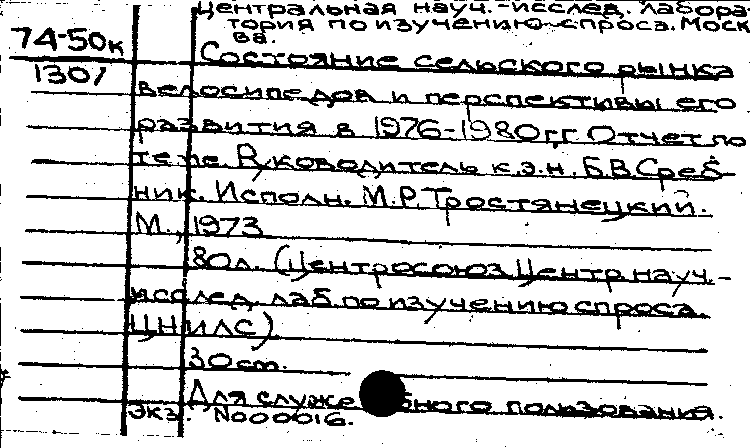 Центральная науч.-исслед. лабора-
тория по изучению спроса. Моск
ва.
74-50к
1307
Состояние сельского рынка
велосипедов и перспективы его
развития в 1976-1980 г.г. Отчет по
теме. Руководитель к.э.н. Б.В. Среб-
ник. Исполн. М.Р. Тростянецкий.
М., 1973
80л. (Центросоюз. Центр. науч.-
исслед. лаб. по изучению спроса.
ЦНИЛС)
30 cm.
Для служебного пользования.
Экз. №000016.